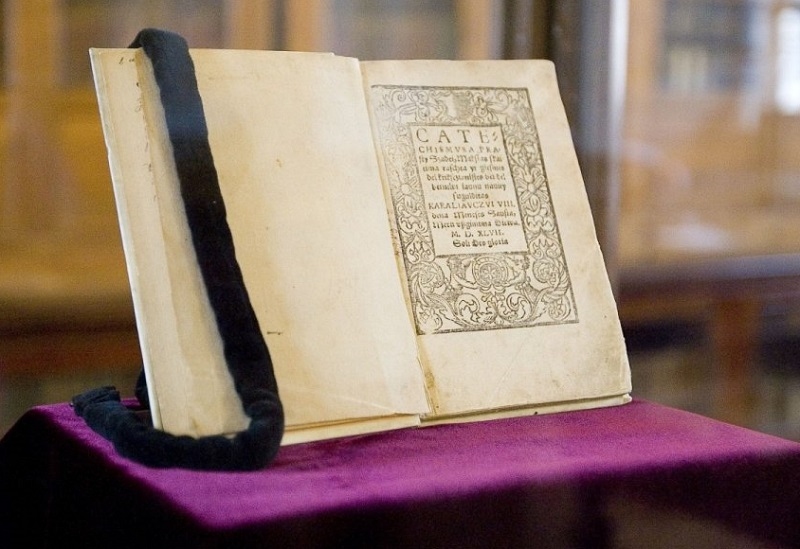 CATE⸗
CHISMVSA PRA⸗
sty Szadei, Makslas skai⸗
tima raschta yr giesmes
del kriksczianistes bei del
berneliu iaunu nauiey
sugulditas
KARALIAVCZVI VIII.
dena Meneses Sausia,
Metu vßgimima Diewa.
M. D. XLVII.
Soli Deo gloria